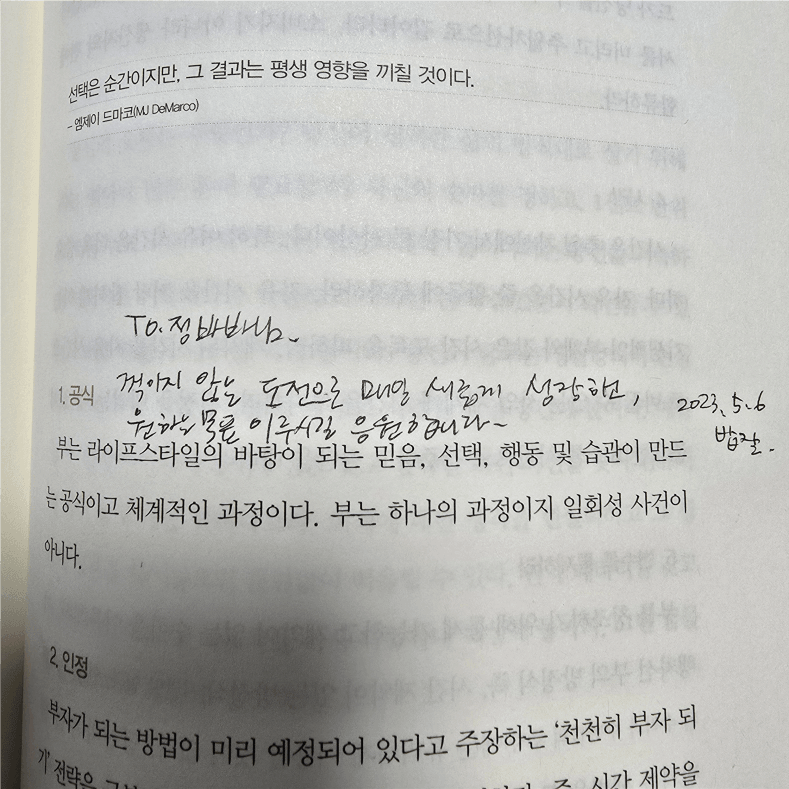 선택은 순간이지만, 그 결과는 평생 영향을 끼칠 것이다.
- 엠제이 드마코(MJ DeMarco)
To. 정바바님~
1. 공식
않는 도전으로 매일 새롭게 성장하는,
원하는 목표 이루시길 응원합니다~
2023. 5. 6
밥잘.
부는 라이프스타일의 바탕이 되는 믿음, 선택, 행동 및 습관이 만드
는 공식이고 체계적인 과정이다. 부는 하나의 과정이지 일회성 사건이
아니다.
2. 인정
부자가 되는 방법이 미리 예정되어 있다고 주장하는 ‘천천히 부자 되
기’ 전략은
즉, 시간 제약을